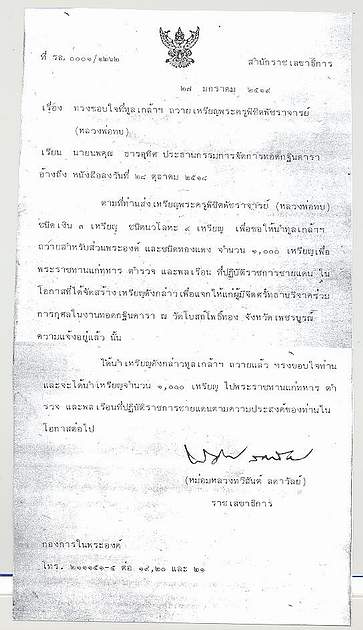 ที่ รล. ๐๐๐๑/๑๒๖๒
สำนักราชเลขาธิการ
๒๗ มกราคม ๒๕๑๙
เรื่อง ทรงขอบใจที่ทูลเกล้าฯ ถวายเหรียญพระครูพิชิตพัชราจารย์
(หลวงพ่อทบ)
เรียน นายนพคุณ ธารอุทิศ ประธานกรรมการจัดการทอดกฐินดารา
อ้างถึง หนังสือลงวันที่ ๒๘ ตุลาคม ๒๕๑๘
ตามที่ท่านส่งเหรียญพระครูพิชิตพัชราจารย์ (หลวงพ่อทบ)
ชนิดเงิน ๓ เหรียญ ชนิดนวโลหะ ๙ เหรียญ เพื่อขอให้นำทูลเกล้าฯ
ถวายสำหรับส่วนพระองค์ และชนิดทองแดง จำนวน ๑,๐๐๐ เหรียญเพื่อ
พระราชทานแก่ทหาร ตำรวจ และพลเรือน ที่ปฏิบัติราชการชายแดน ใน
โอกาสที่ได้จัดสร้างเหรียญดังกล่าวเพื่อแจกให้แก่ผู้มีจิตศรัทธาบริจาคร่วม
การกุศลในงานทอดกฐินดารา ณ วัดโบสถ์โพธิ์ทอง จังหวัดเพชรบูรณ์
ความแจ้งอยู่แล้ว นั้น
ได้นำเหรียญดังกล่าวทูลเกล้าฯ ถวายแล้ว ทรงขอบใจท่าน
และจะได้นำเหรียญจำนวน ๑,๐๐๐ เหรียญ ไปพระราชทานแก่ทหาร ตำ
รวจ และพลเรือนที่ปฏิบัติราชการชายแดนตามความประสงค์ของท่านใน
โอกาสต่อไป
(หม่อมหลวงทวีสันต์ ลดาวัลย์)
ราชเลขาธิการ
กองการในพระองค์
โทร. ๒๑๑๑๕๑-๕ ต่อ ๑๙,๒๐ และ ๒๑